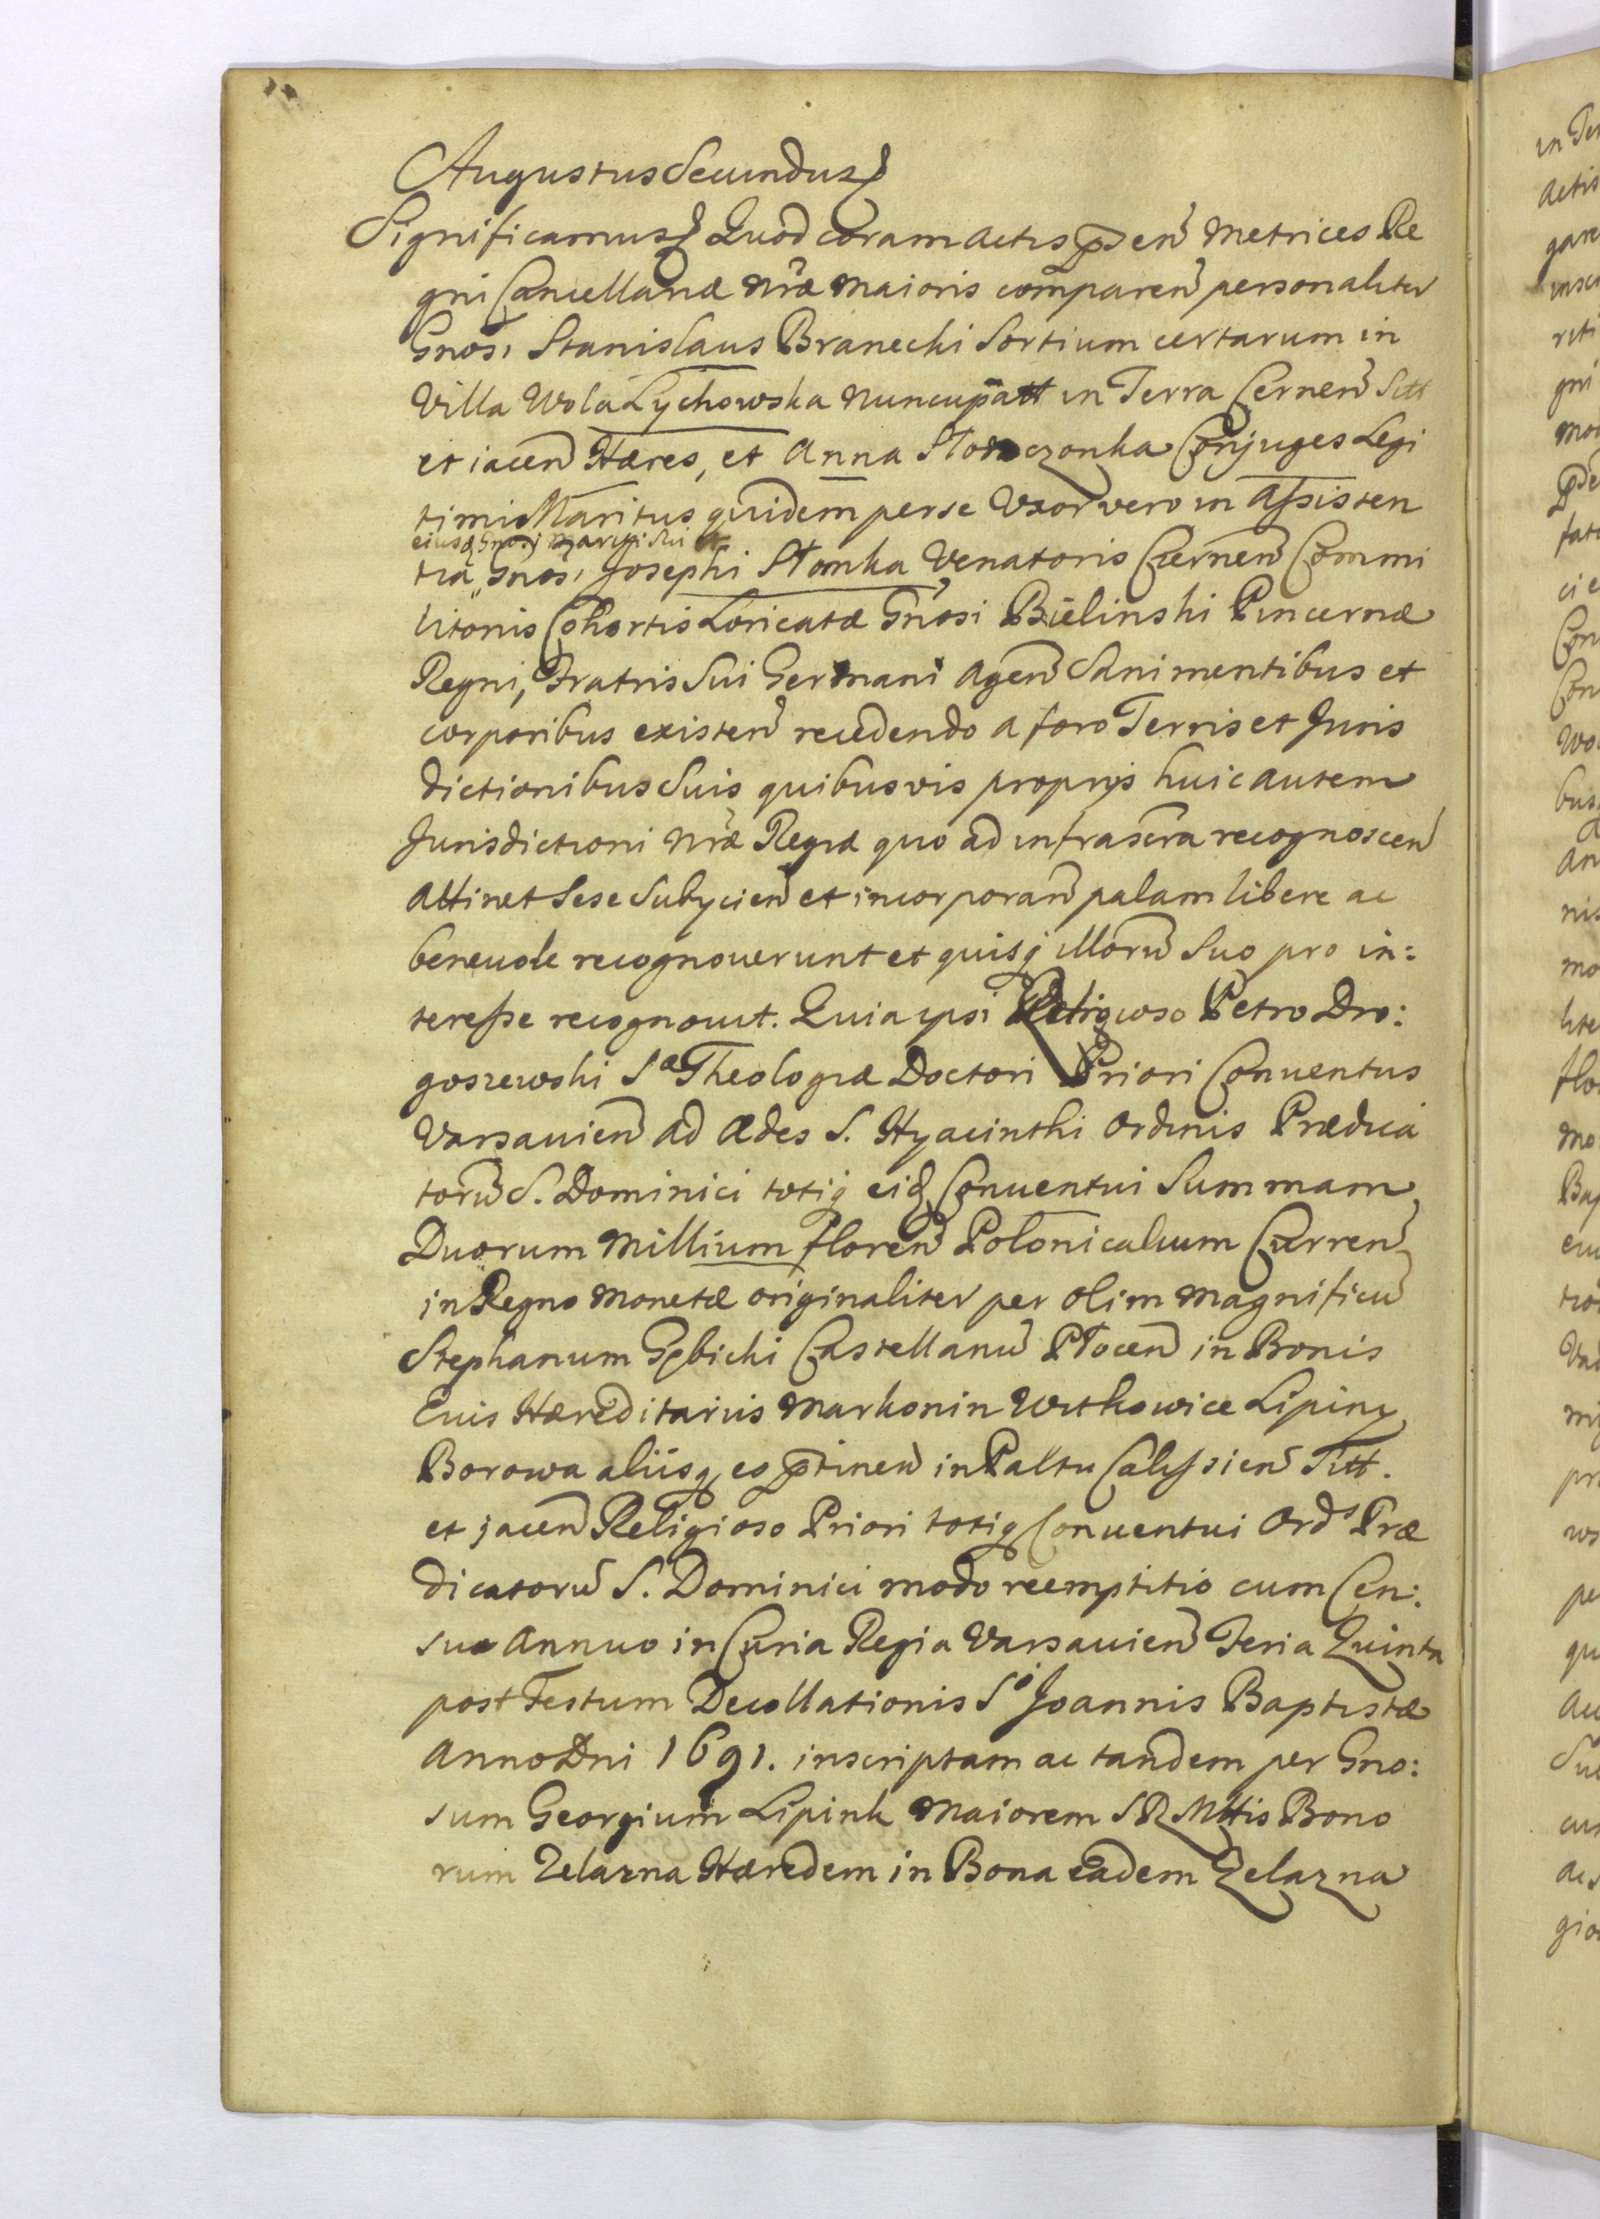 Augustus Secundus
Significamus Quod coram Actis p̄sen Metrices Re
gni Cancellariæ N̄ræ Maioris comparen personaliter
Gnosi Stanislaus Branecki Sortium certarum in
Villa Wola Lychowska Nuncupatt in Terra Cernen Sitt
et iacen Hæres, et Anna Słomczonka Conjuges Legi
timi Maritus quidem per se Uxor vero in Assisten
eiusq Gnosi Mariti Sui
tia Gnosi Josephi Słomka Venatoris Czernen Commi
litonis Cohortis Loricatæ Gnosi Bielinski Pincernæ
Regni, Fratris Sui Germani Agen Sani mentibus et
corporibus existen recedendo a foro Terris et Juris
dictionibus Suis quibusvis proprijs huic autem
Jurisdictioni N̄ræ Regiæ quo ad infrascra recognoscen
Attinet Sese Subijcien et incorporan palam libere ac
beneuole recognouerunt et quisq illorū Suo pro in:
teresse recognouit. Quia ipsi Religioso Petro Dro:
goszewski Sæ Theologiæ Doctori Priori Conuentus
Varsauien Ad Ædes S. Hyacinthi Ordinis Prædica
torū S. Dominici totiq eid Conuentui Summam
Duorum Millium floren Polonicalium Curren
in Regno Monetæ originaliter per olim Magnificū
Stephanum Gębicki Castellanū Płocen in Bonis
Euis Hæreditariis Markonin Witkowice Lipiny
Borowa aliisq eo p̄tinen in Paltu Calissien Sitt.
et jacen Religioso Priori totiq Conuentui Ord Præ
dicatorū S. Dominici modo reemptitio cum Cen:
su Annuo in Curia Regia Varsauien Feria Quinta
post Festum Decollationis Si Joannis Baptistæ
Anno Dni 1691. inscriptam ac tandem per Gno:
sum Georgium Lipink Maiorem S R Mttis Bono
rum Zelazna Hæredem in Bona eadem Zelazna